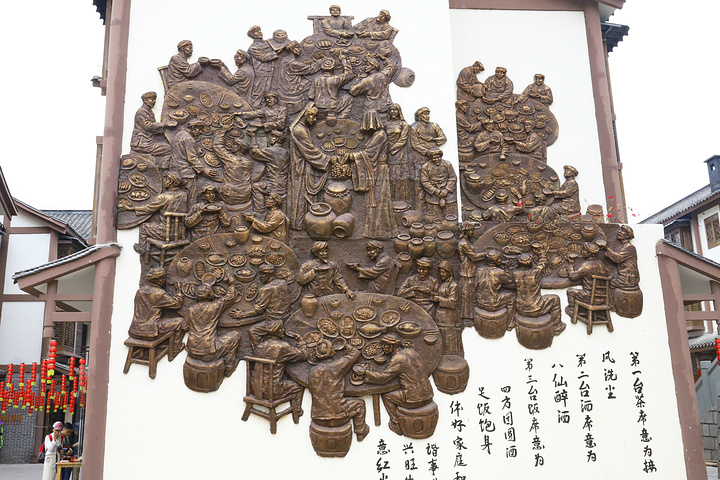 第一台茶席意为接
风洗尘
第二台酒席意为
八仙醉酒
第三台饭席意为
四方团圆酒
足饭饱身
体好家庭和
谐事
兴旺
意红火